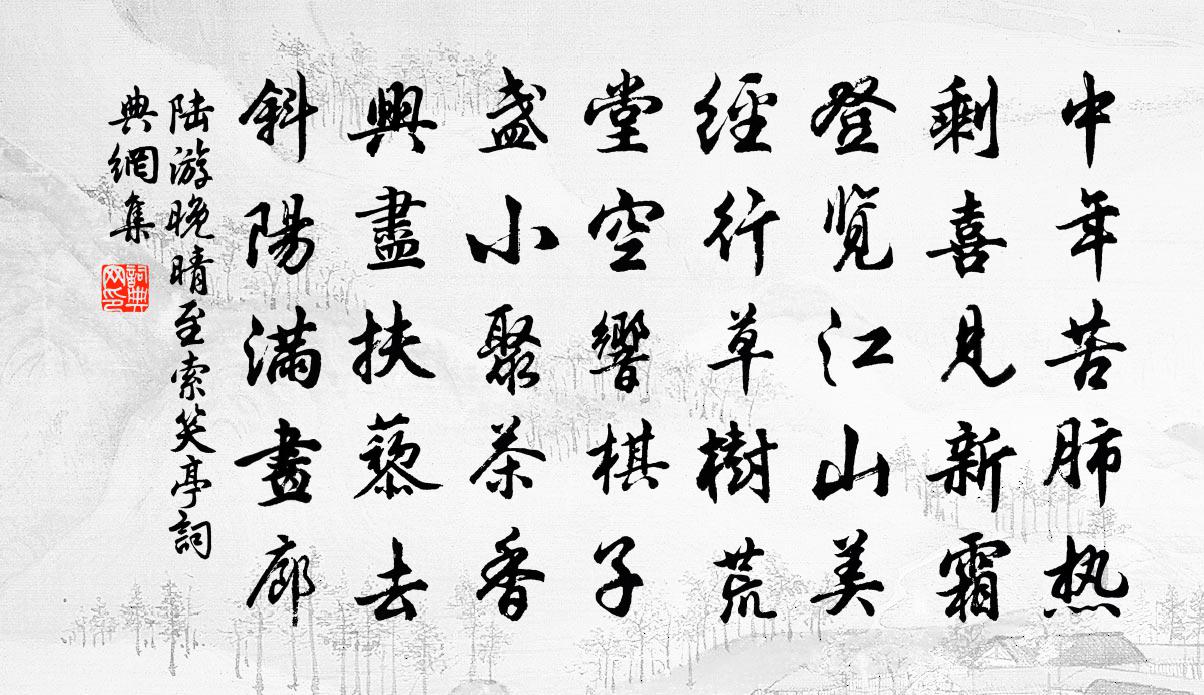 中年苦肺热
剩喜見新霜
登览江山美
經行草樹荒
堂空響棋子
盏小聚茶香
興盡扶藜去
斜陽满畫廊
陆游晚晴至索笑亭詞
典網集
詞典
网印